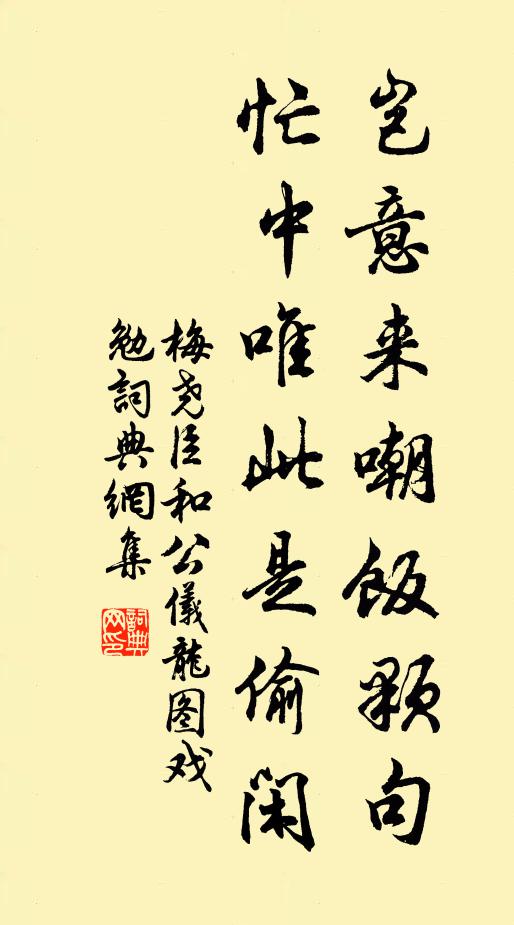 岂意来嘲饭颗句
忙中唯此是偷闲
梅尧臣和公仪龙图戏
勉詞典網集
詞典
网印